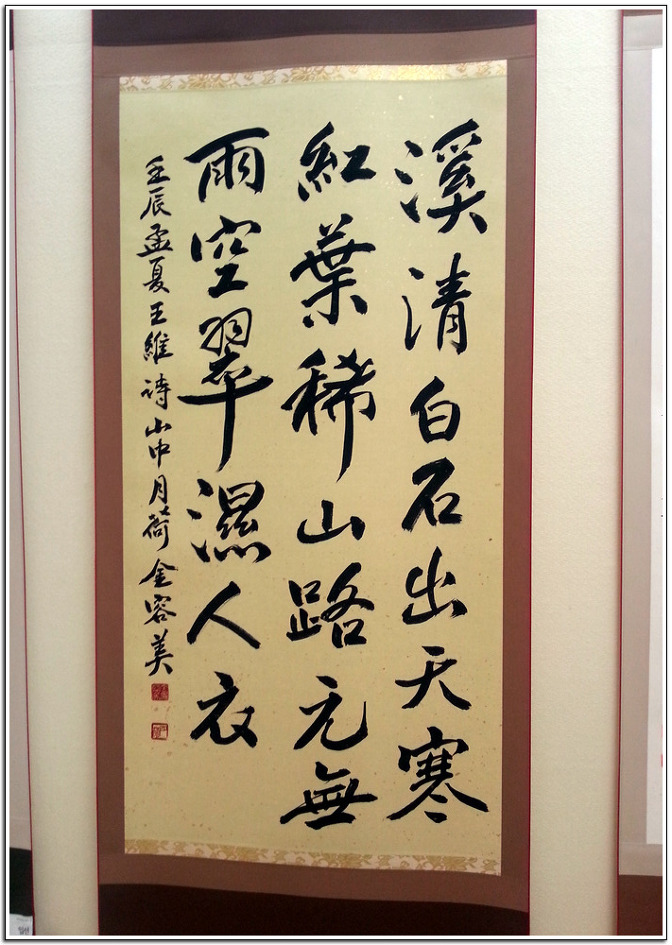 溪清白石出天寒
紅葉稀山路元無
雨空翠濕人衣
壬辰孟夏王維詩山中月荷金容美